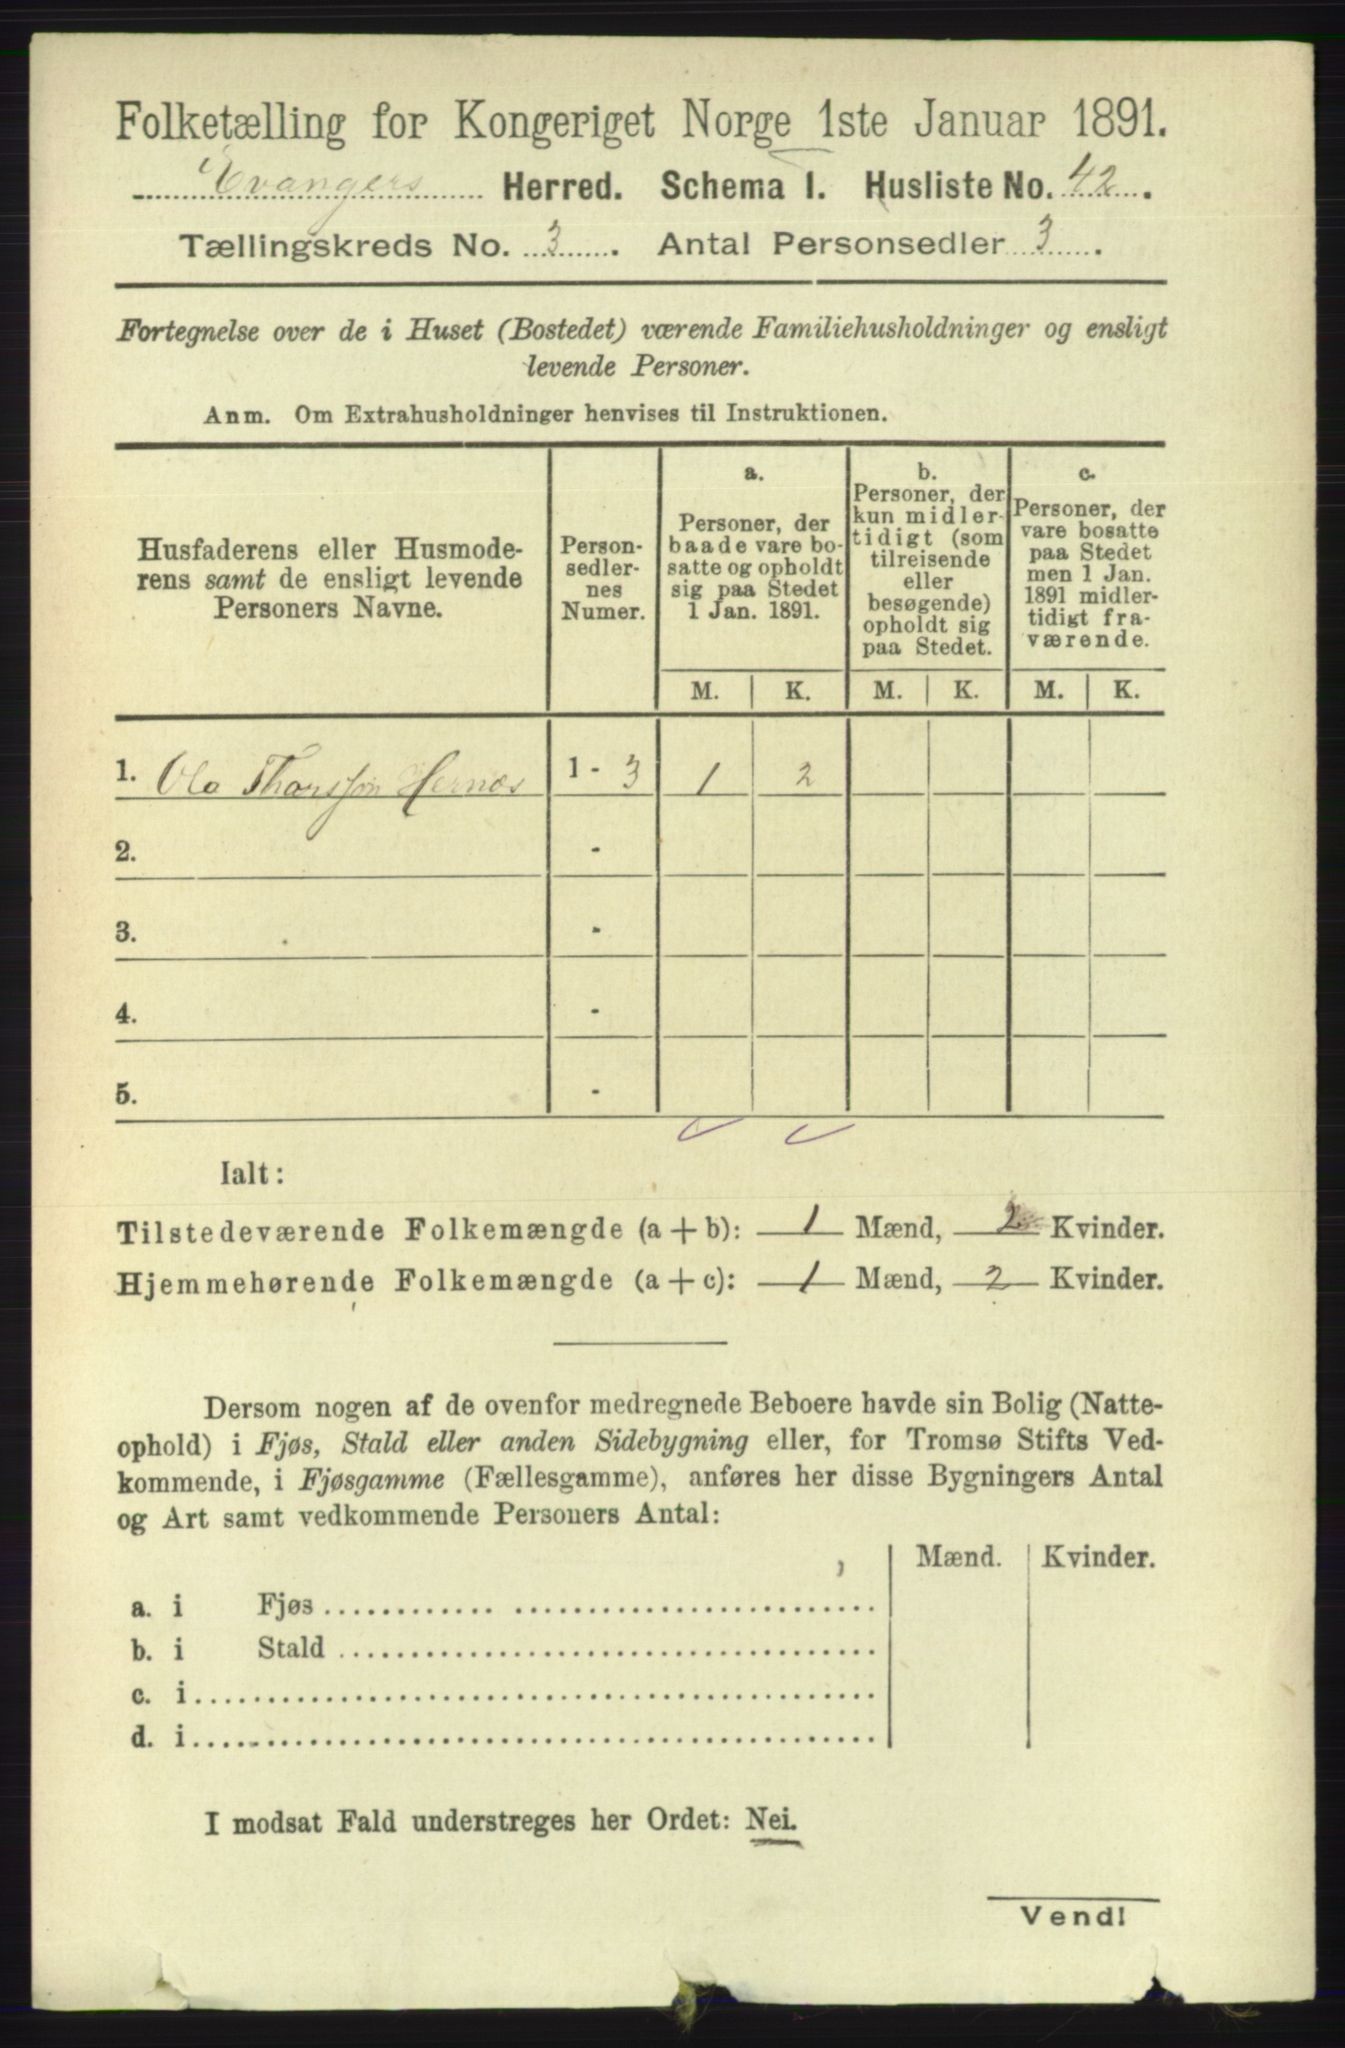 Folketælling for Kongeriget Norge 1ste Januar 1891.
Evangers Herred. Schema I. Husliste No. 42.
Tællingskreds No. 3. Antal Personsedler 3.
Fortegnelse over de i Huset (Bostedet) værende Familiehusholdninger og ensligt
levende Personer.
Anm. Om Extrahusholdninger henvises til Instruktionen.
Husfaderens eller Husmode-
rens samt de ensligt levende
Personers Navne.
Person-
sedler-
nes
Numer.
a.
Personer, der
baade vare bo-
satte og opholdt
sig paa Stedet
1 Jan. 1891.
b.
Personer, der
kun midler-
tidigt (som
tilreisende
eller
besøgende)
opholdt sig
paa Stedet.
c.
Personer, der
vare bosatte
paa Stedet
men 1 Jan.
1891 midler-
tidigt fra-
værende.
M. K. M. K. M. K.
1. Ola Thorsson Hernæs 1 - 3 1 2
2. -
3. -
4. -
5. -
Ialt:
Tilstedeværende Folkemængde (a + b): 1 Mænd, 2 Kvinder.
Hjemmehørende Folkemængde (a + c): 1 Mænd, 2 Kvinder.
Dersom nogen af de ovenfor medregnede Beboere havde sin Bolig (Natte-
ophold) i Fjøs, Stald eller anden Sidebygning eller, for Tromsø Stifts Ved-
kommende, i Fjøsgamme (Fællesgamme), anføres her disse Bygningers Antal
og Art samt vedkommende Personers Antal:
Mænd. Kvinder.
a. i Fjøs
b. i Stald
c. i
d. i
I modsat Fald understreges her Ordet: Nei.
Vend!